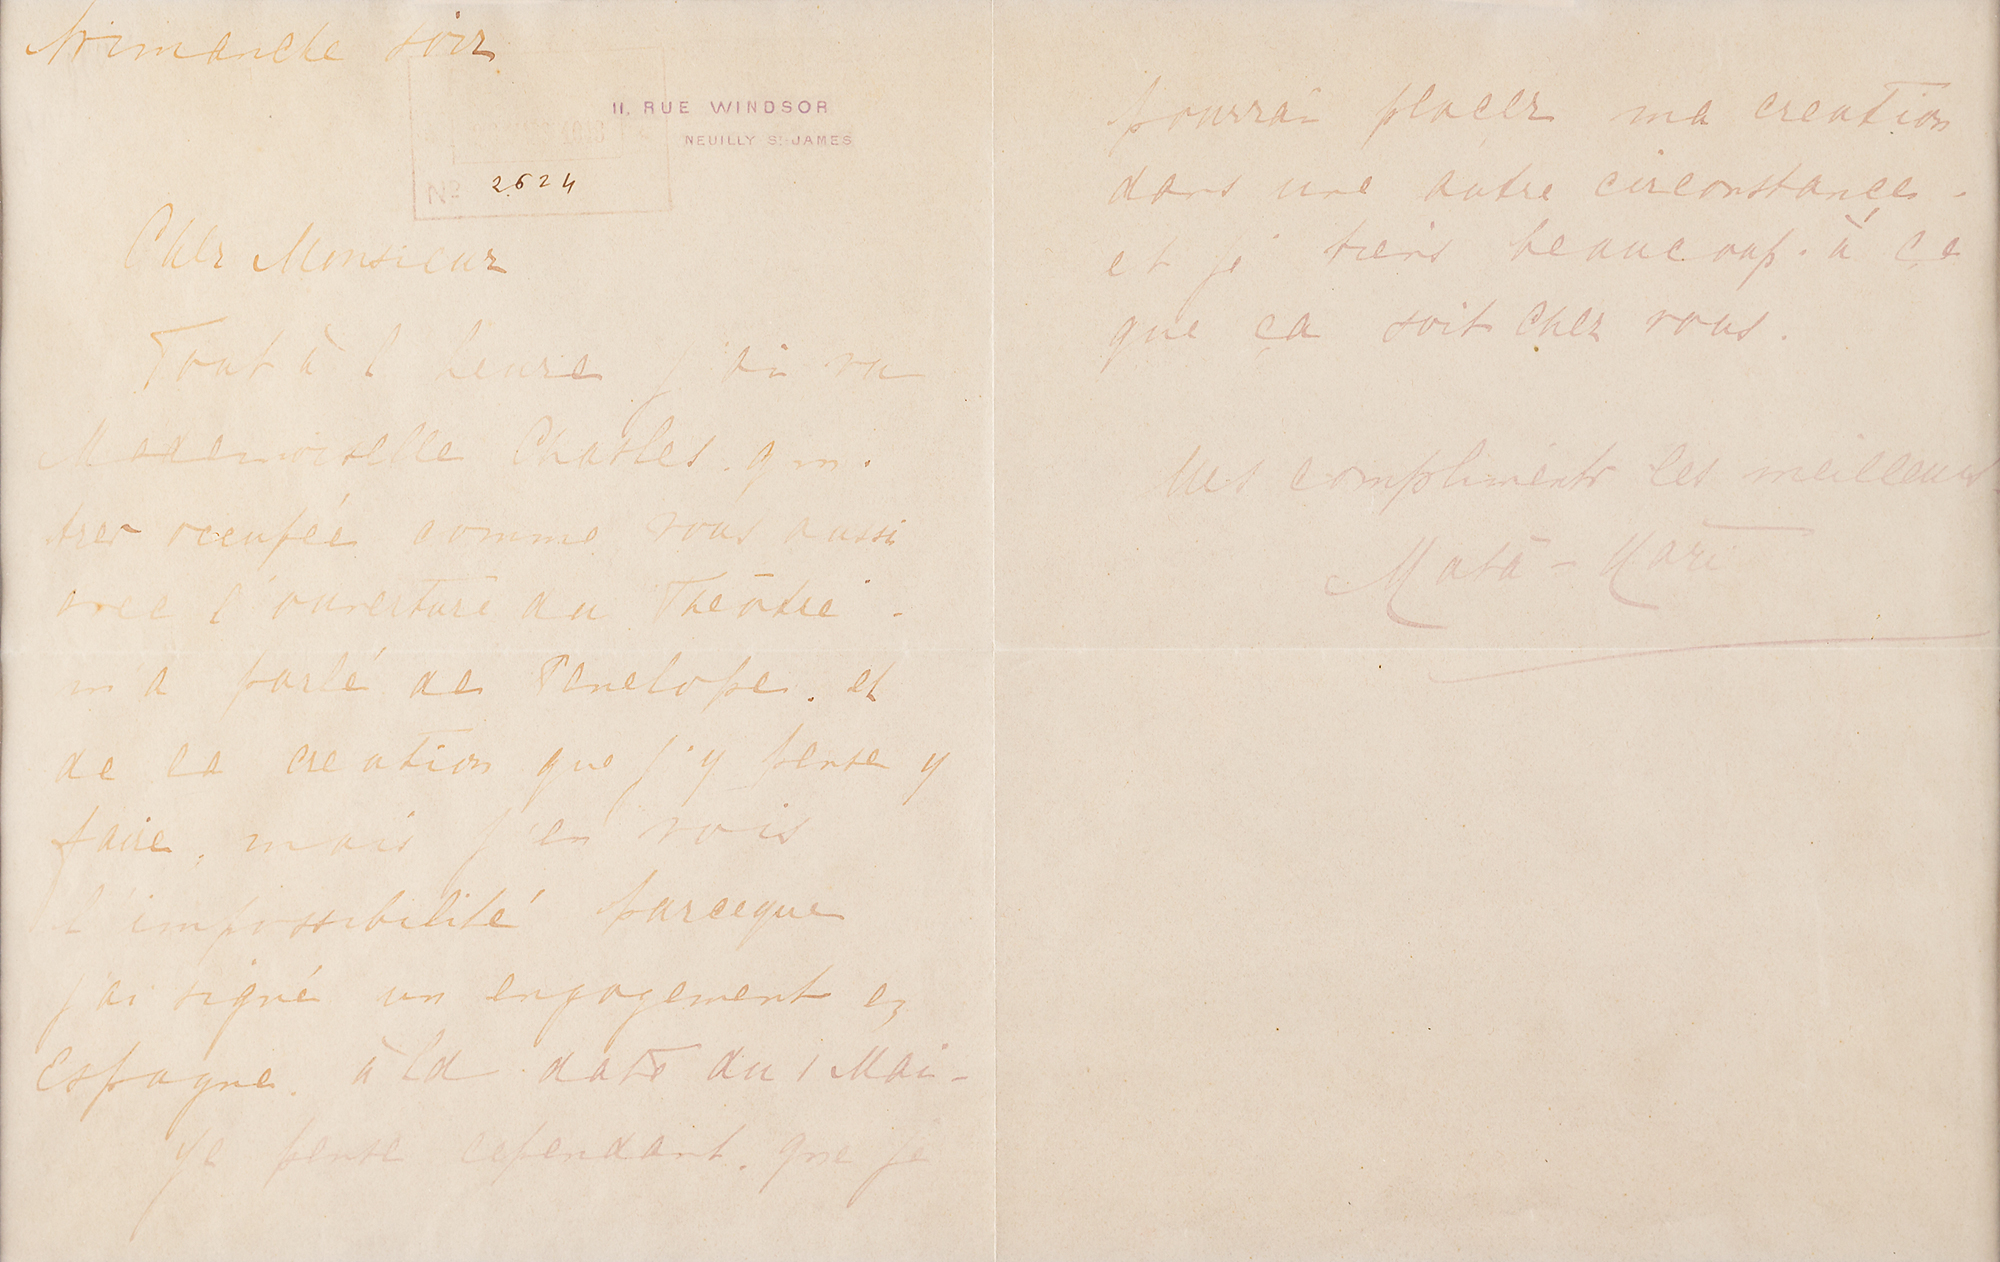 Dimanche soir
11, RUE WINDSOR
NEUILLY ST JAMES
No 2624
Cher Monsieur
Tout à l heure j'ai vu
Mademoiselle Chasles. qui.
tres occupée comme vous aussi
avec l'ouverture du Théâtre -
m'a parlé de Penelope. et
de la creation que j'y pense y
faire. mais j'en vois
l'impossibilité parceque
j'ai signé un engagement en
Espagne. à la date du 1 Mai -
Je pense cependant. que je
pourrai placer ma creation
dans une autre circonstance -
et je tiens beaucoup. à ce
que ça soit chez vous.
Mes compliments les meilleurs
Mata-Hari